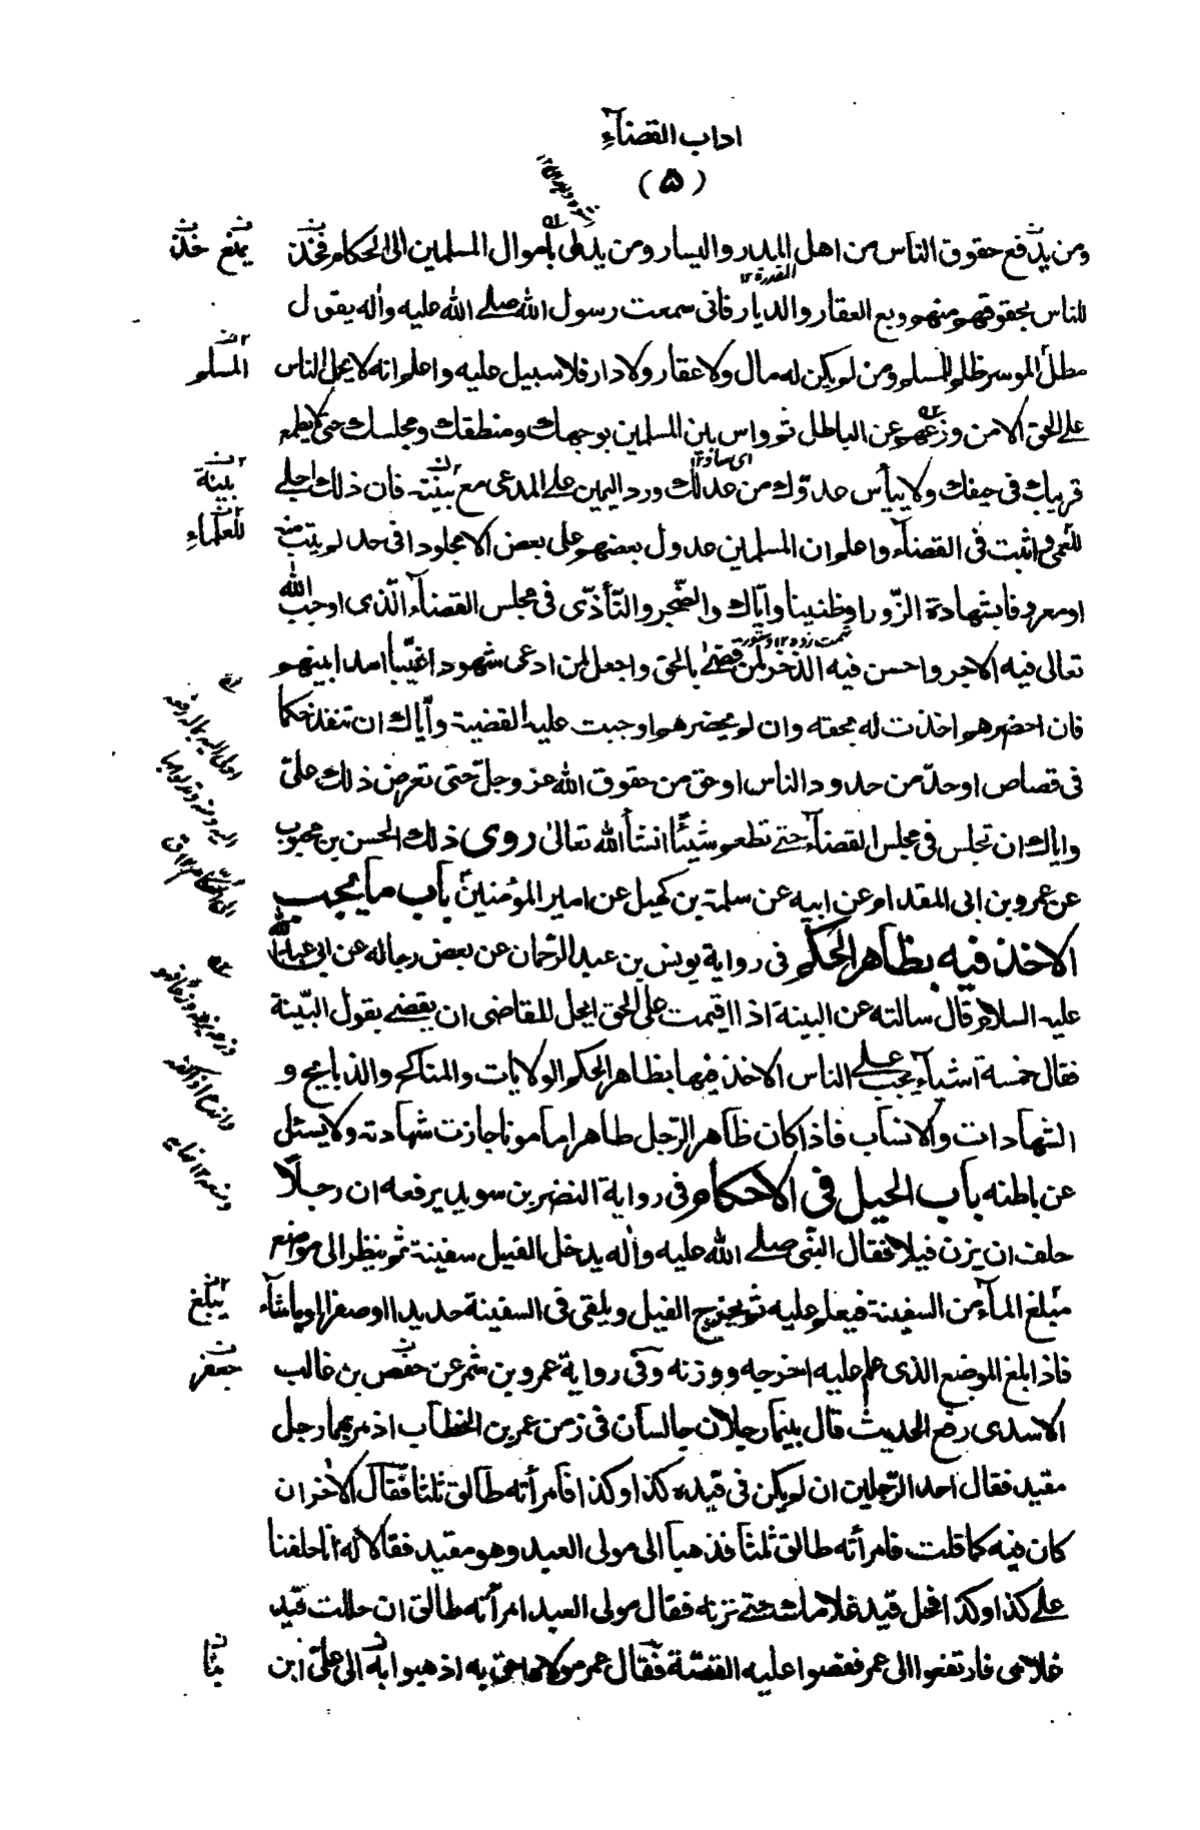 اداب القضآء
(۵)
ومن يدفع حقوق الناس من اهل المدر واليسار ومن يدلى باموال المسلمين الى الحكام فخذ
يمنع خذ
القدرة ۱۲
للناس بحقوقهم منهم وبع العقار والديار فانى سمعت رسول الله صلے الله عليه واله يقول
مطل الموسر ظلم للمسلم ومن لم يكن له مال ولا عقار ولا دار فلا سبيل عليه واعلم انه لا يحمل الناس
المسلم
علے الحق الا من وزعهم عن الباطل ثم واس بين المسلمين بوجهك ومنطقك ومجلسك حتى لا يطمع
قريبك فى حيفك ولا ييأس عدوّك من عدلك ورد اليمين علے المدعى مع بيّنته فان ذلك اجلے
بينة
للعمى واثبت فى القضآء واعلم ان المسلمين عدول بعضهم على بعض الا مجلودا فى حد لم يتب منه
للعلمآء
او معروفا بشهادة الزّور او ظنينا وايّاك والضّجر والتّأذّى فى مجلس القضآء الّذى اوجب الله
تعالى فيه الاجر واحسن فيه الذخر لمن قضے بالحق واجعل لمن ادعى شهودا غيّبا امدا بينهم
فان احضرهم اخذت له بحقه وان لم يحضرهم اوجبت عليه القضية وايّاك ان تنفذ حكما
فى قصاص او حدّ من حدود الناس او حق من حقوق الله عز وجلّ حتى تعرض ذلك علىّ
واياك ان تجلس فى مجلس القضآء حتے تطعم شيئًا انشأ الله تعالى روى ذلك الحسن بن محبوب
عن عمرو بن ابى المقدام عن ابيه عن سلمة بن كهيل عن امير المؤمنين باب ما يجب
الاخذ فيه بظاهر الحكم فى رواية يونس بن عبد الرحمان عن بعض رجاله عن ابى عبد الله
عليه السلام قال سالته عن البينة اذا اقيمت على الحق ايحل للقاضى ان يقضے بقول البيّنة
فقال خمسة اشيآء يجب علے الناس الاخذ فيها بظاهر الحكم الولايات والمناكح والذبايح و
الشهادات والانساب فاذا كان ظاهر الرّجل طاهرا مامونا جازت شهادته ولا يسئل
عن باطنه باب الحيل فى الاحكام فى رواية النضر بن سويد يرفعه ان رجلاً
حلف ان يزن فيلا فقال النّبى صلے الله عليه واله يدخل الفيل سفينة ثم ينظر الى موضع
مبلغ المآء من السفينة فيعلم عليه ثم يخرج الفيل ويلقى فى السفينة حديدا او صفرا او ما شآء
يبلغ
فاذا بلغ الموضع الذى علم عليه اخرجه ووزنه وفى رواية عمرو بن شمر عن حفص بن غالب
جعفر
الاسدى رفع الحديث قال بينما رجلان جالسان فى زمن عمر بن الخطاب اذ مر بهما رجل
مقيد فقال احد الرّجلين ان لم يكن فى قيده كذا وكذا فامرأته طالق ثلثا فقال الاخر ان
كان فيه كما قلت فامرأته طالق ثلثا فذهبا الى مولى العبد وهو مقيد فقالا له انا حلفنا
علے كذا وكذا فحل قيد غلامك حتے نزنه فقال مولى العبد امرأته طالق ان حللت قيد
غلامى فارتفعوا الى عمر فقصوا عليه القصّة فقال عمر مولاه احق به اذهبوا به الى علىّ ابن
بنا